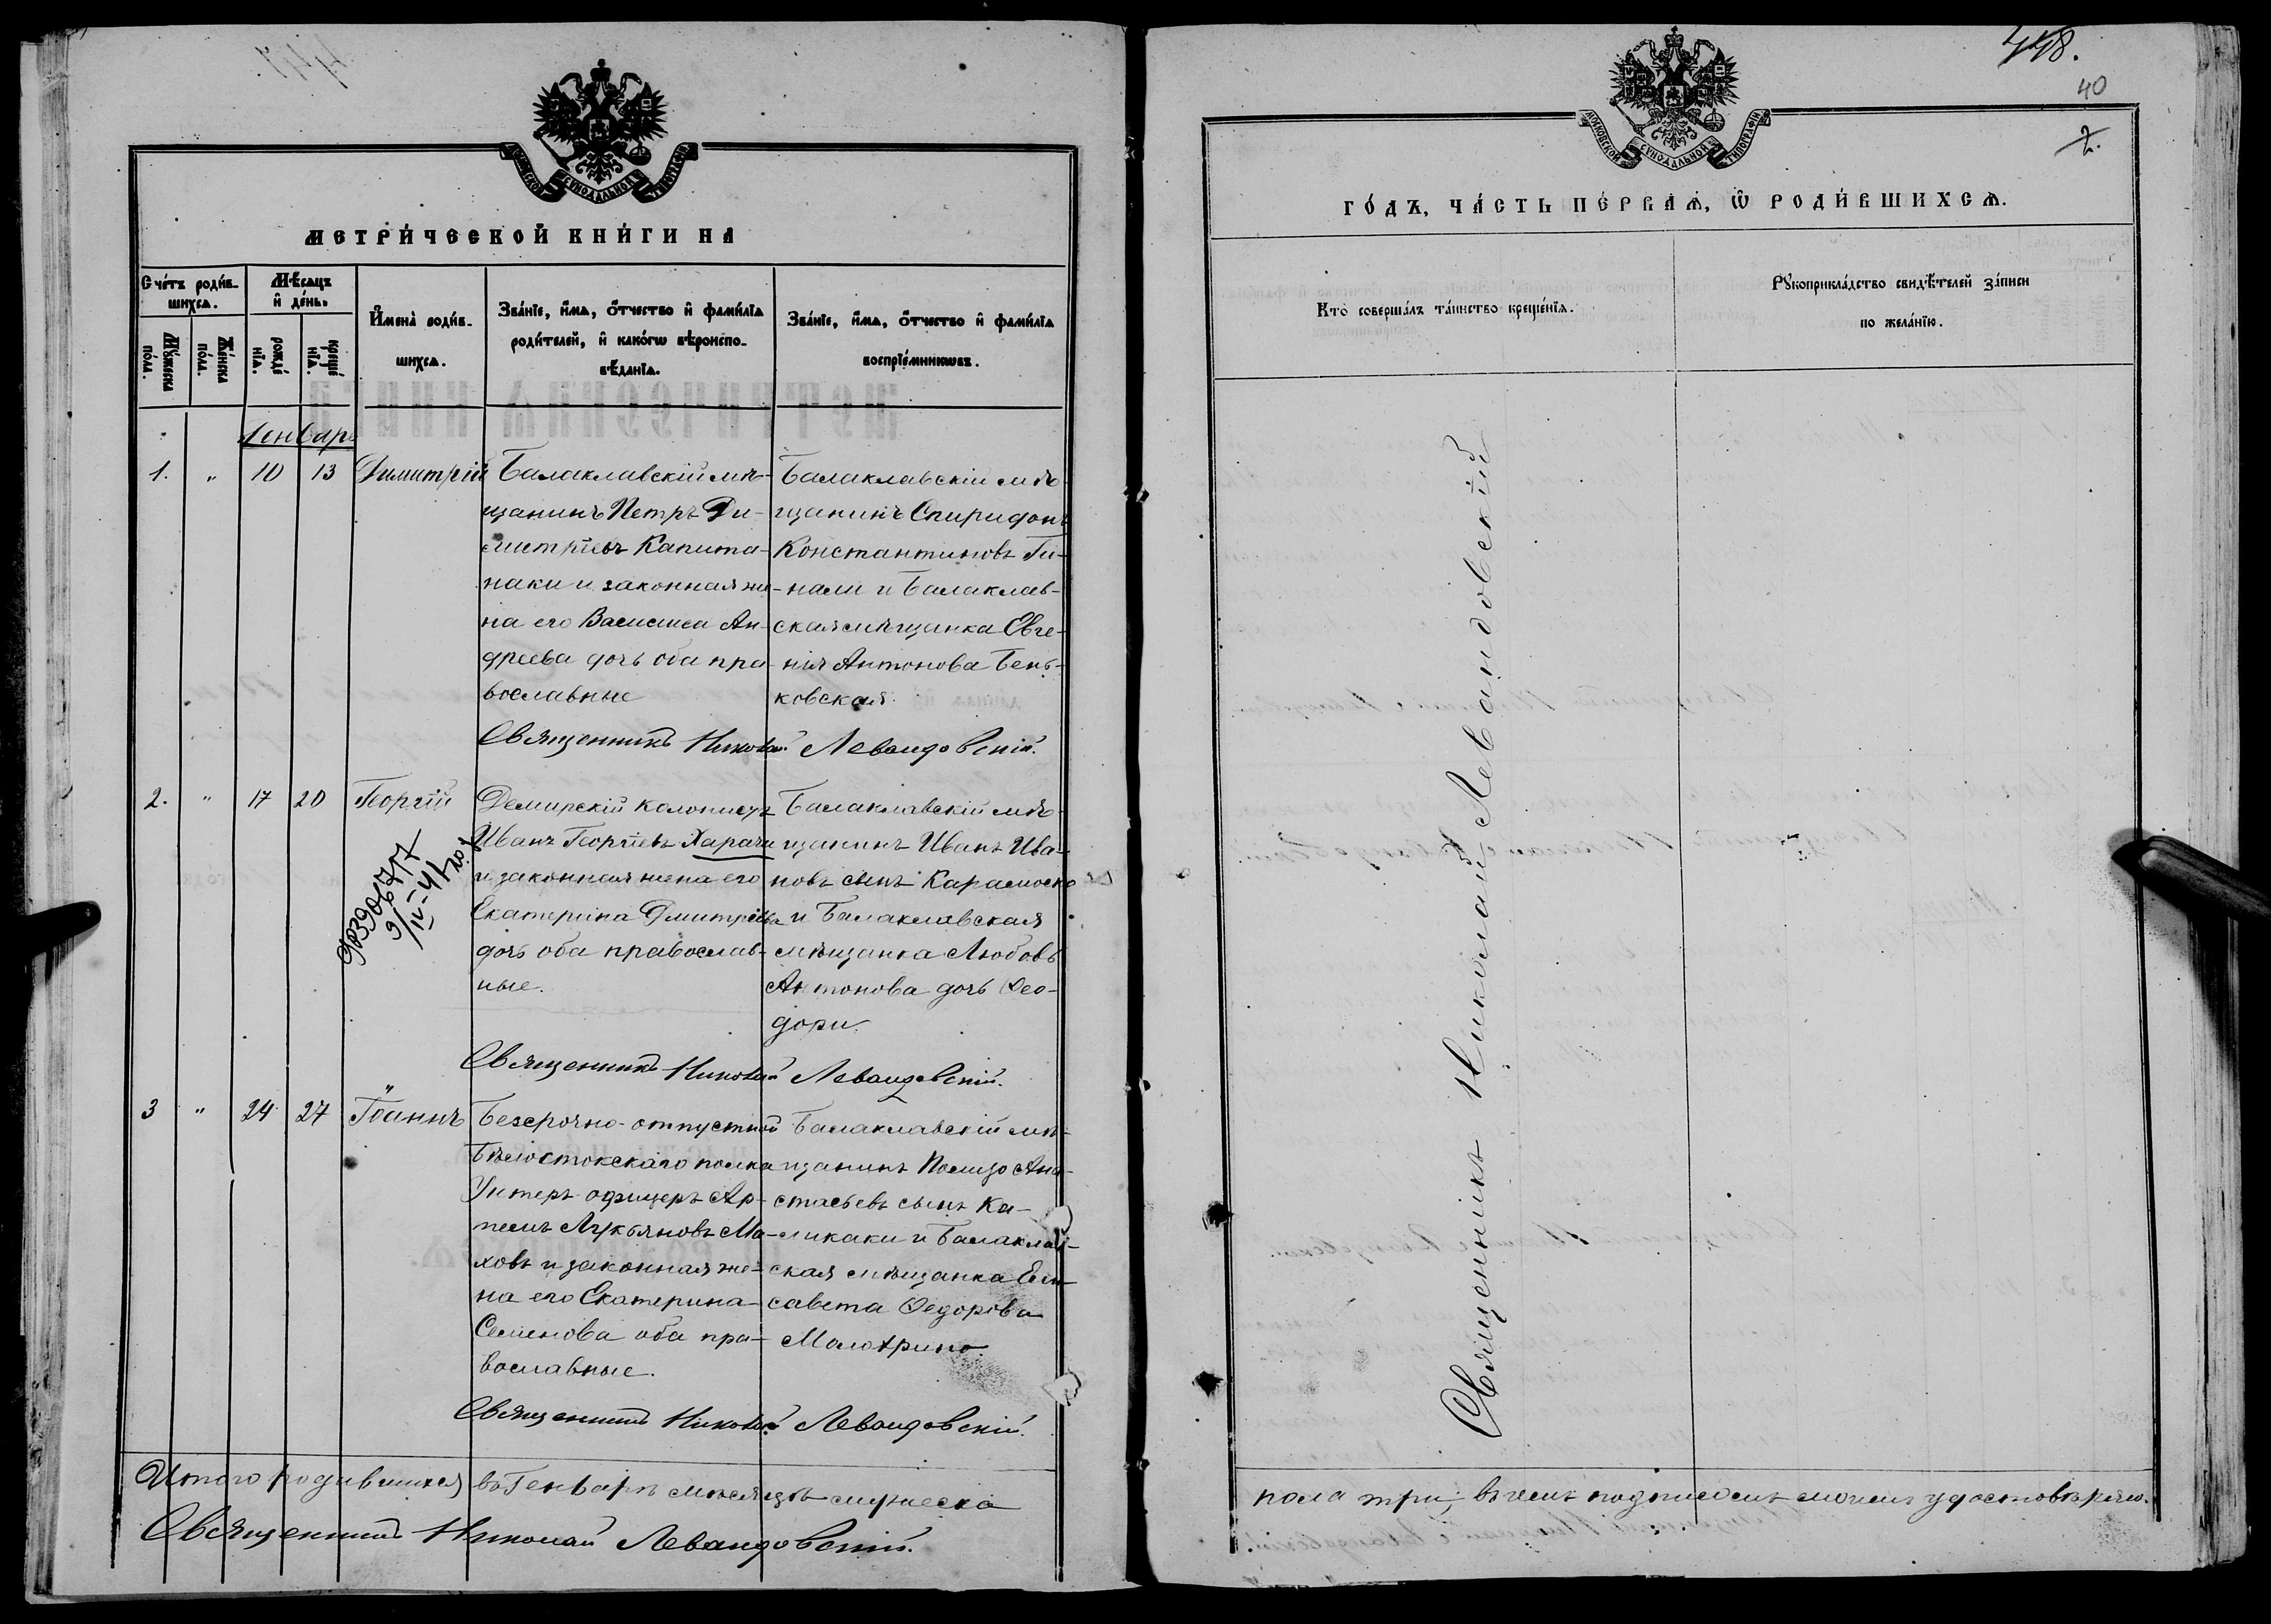 МОСКОВСКОЙ СѴНОДАЛЬНОЙ ТИПОГРАФІИ
МЕТРИ́ЧЕСКОЙ КНИ́ГИ НА
Сче́тъ роди́в-
шихсѧ.
Мѣ́сѧцъ
и҆ де́нь.
И҆мена̀ роди́в-
шихсѧ.
Зва́нїе, и҆́мѧ, ѻ҆́тчество и҆ фами́лїѧ
роди́телей, и҆ како́гѡ вѣроиспо-
вѣ́данїѧ.
Зва́нїе, и҆́мѧ, ѻ҆́тчество и҆ фами́лїѧ
воспрїе́мникѡвъ.
Мꙋ́жеска
по́ла.
Же́нска
по́ла.
рожде́
нїѧ.
креще́
нїѧ.
Генварь
1. " 10 13 Димитрій
Балаклавскій мѣ-
щанинъ Петръ Ди-
митріевъ Капита-
наки и законная же-
на его Василиса Ан-
дреева дочь оба пра-
вославные
Балаклавскій мѣ-
щанинъ Спиридонъ
Константиновъ Ги-
нали и Балаклав-
ская мѣщанка Евге-
нія Антонова Бень-
ковская
Священникъ Николай Левандовскій.
2. " 17 20 Георгій
Демирскій колонистъ
Иванъ Георгіевъ Харачи
и законная жена его
Екатерина Дмитріева
дочь оба православ-
ные.
Балаклавскій мѣ-
щанинъ Иванъ Ива-
новъ сынъ Карамоско
и Балаклавская
мѣщанка Любовь
Антонова дочь Ѳео-
дори.
9/IV-41
Священникъ Николай Левандовскій.
3 " 24 27 Іоаннъ
Безсрочно-отпустной
Бѣлостокскаго полка
Унтеръ офицеръ Ар-
темъ Лукьяновъ Ма-
ховъ и законная же-
на его Екатерина
Семенова оба пра-
вославные.
Балаклавскій мѣ-
щанинъ Ана-
стасьевъ сынъ Ка-
ликаки и Балаклав-
ская мѣщанка Ели-
савета Ѳедорова
Малахрино.
Священникъ Николай Левандовскій.
Итого родившихся въ Генварѣ мѣсяцѣ мужеска
Священникъ Николай Левандовскій.
448.
40
2.
МОСКОВСКОЙ СѴНОДАЛЬНОЙ ТИПОГРАФІИ
ГО́ДЪ, ЧА́СТЬ ПЕ́РВАѦ, Ѽ РОДИ́ВШИХСѦ.
Кто̀ соверша́лъ та́инство креще́нїѧ.
Рꙋкоприкла́дство свидѣ́телей за́писи
по жела́нїю.
Священникъ Николай Левандовскій
пола три, въ чемъ подписомъ моимъ удостовѣряю.